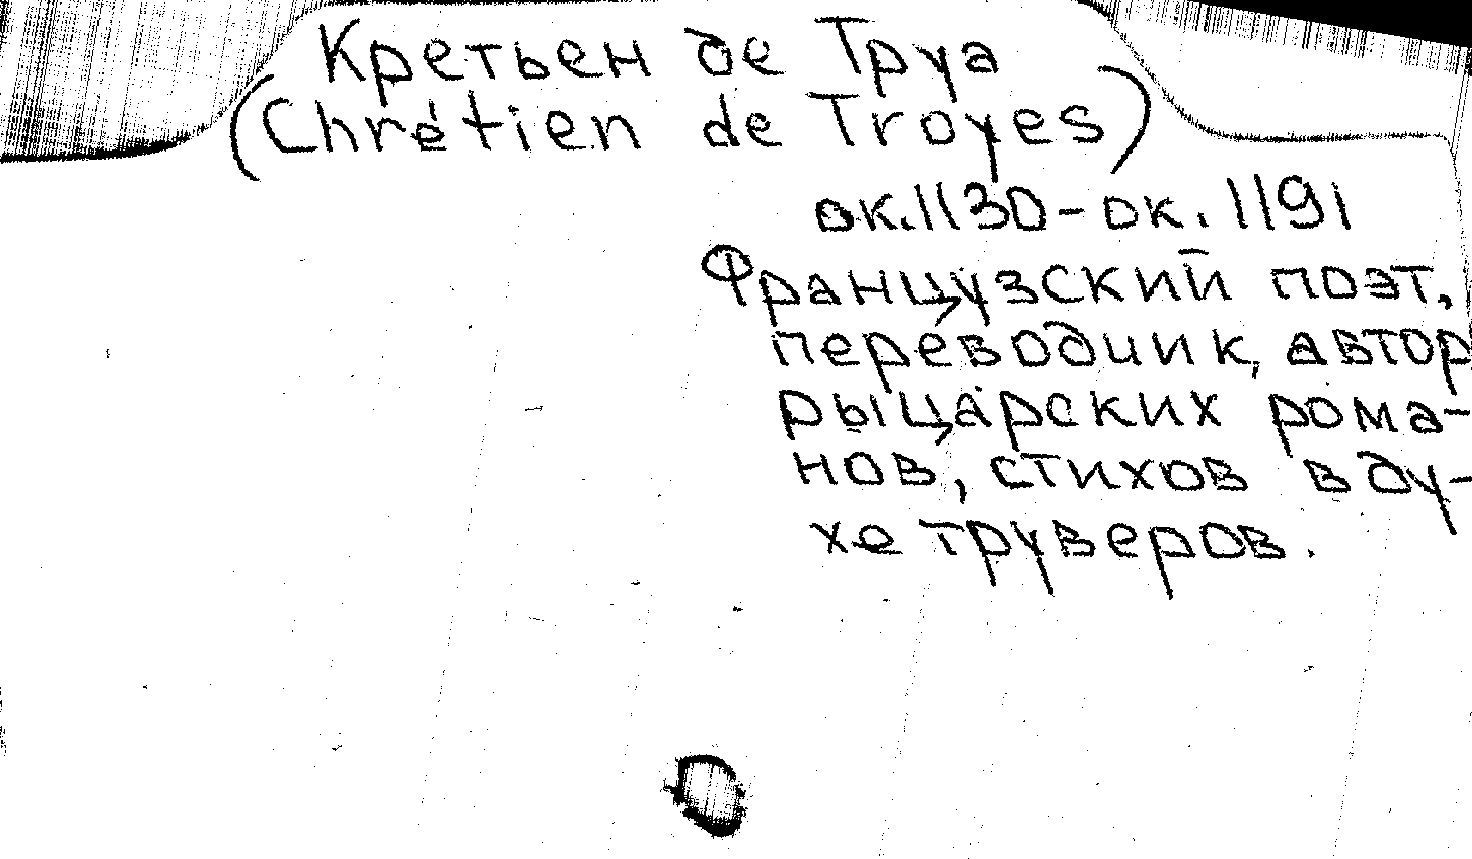 Кретьен де Труа
(Chrétien de Troyes)
ок.1130-ок.1191
Французский поэт,
переводчик, автор
рыцарских рома-
нов, стихов в ду-
хе труверов.